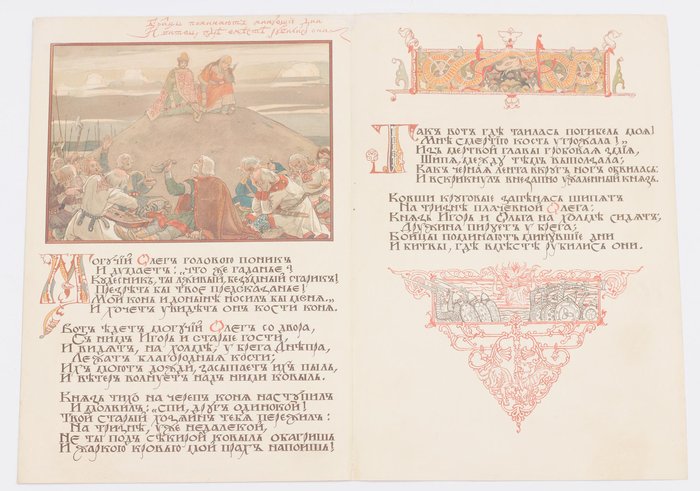 Бойцы поминаютъ минувшіе дни
И битвы, гдѣ вмѣстѣ рубились они.
Могучій Олегъ головою поникъ
И думаетъ: „что же гаданье?
Кудесникъ, ты лживый, безумный старикъ!
Презрѣть бы твое предсказанье!
Мой конь и донынѣ носилъ бы меня.“
И хочетъ увидѣть онъ кости коня.
Вотъ ѣдетъ могучій Олегъ со двора,
Съ нимъ Игорь и старые гости,
И видятъ, на холмѣ, у брега Днѣпра,
Лежатъ благородныя кости;
Ихъ моютъ дожди, засыпаетъ ихъ пыль,
И вѣтеръ волнуетъ надъ ними ковыль.
Князь тихо на черепъ коня наступилъ
И молвилъ: „спи, другъ одинокой!
Твой старый хозяинъ тебя пережилъ:
На тризнѣ, уже недалекой,
Не ты подъ сѣкирой ковыль обагришь
И жаркою кровью мой прахъ напоишь!
Такъ вотъ гдѣ таилась погибель моя!
Мнѣ смертію кость угрожала!“
Изъ мертвой главы гробовая змія,
Шипя, между тѣмъ выползала;
Какъ черная лента вкругъ ногъ обвилась:
И вскрикнулъ внезапно ужаленный князь.
Ковши круговые запѣнясь шипятъ
На тризнѣ плачевной Олега:
Князь Игорь и Ольга на холмѣ сидятъ;
Дружина пируетъ у брега;
Бойцы поминаютъ минувшіе дни
И битвы, гдѣ вмѣстѣ рубились они.